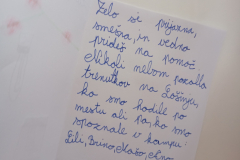 Zelo si prijazna,
smešna, in vedno
prideš na pomoč
Nikoli nebom pozabla
trenutkov na Lošinju,
ko smo hodile po
mestu ali pa, ko smo
spoznale v kampu:
Lili, Brino, Mašo,